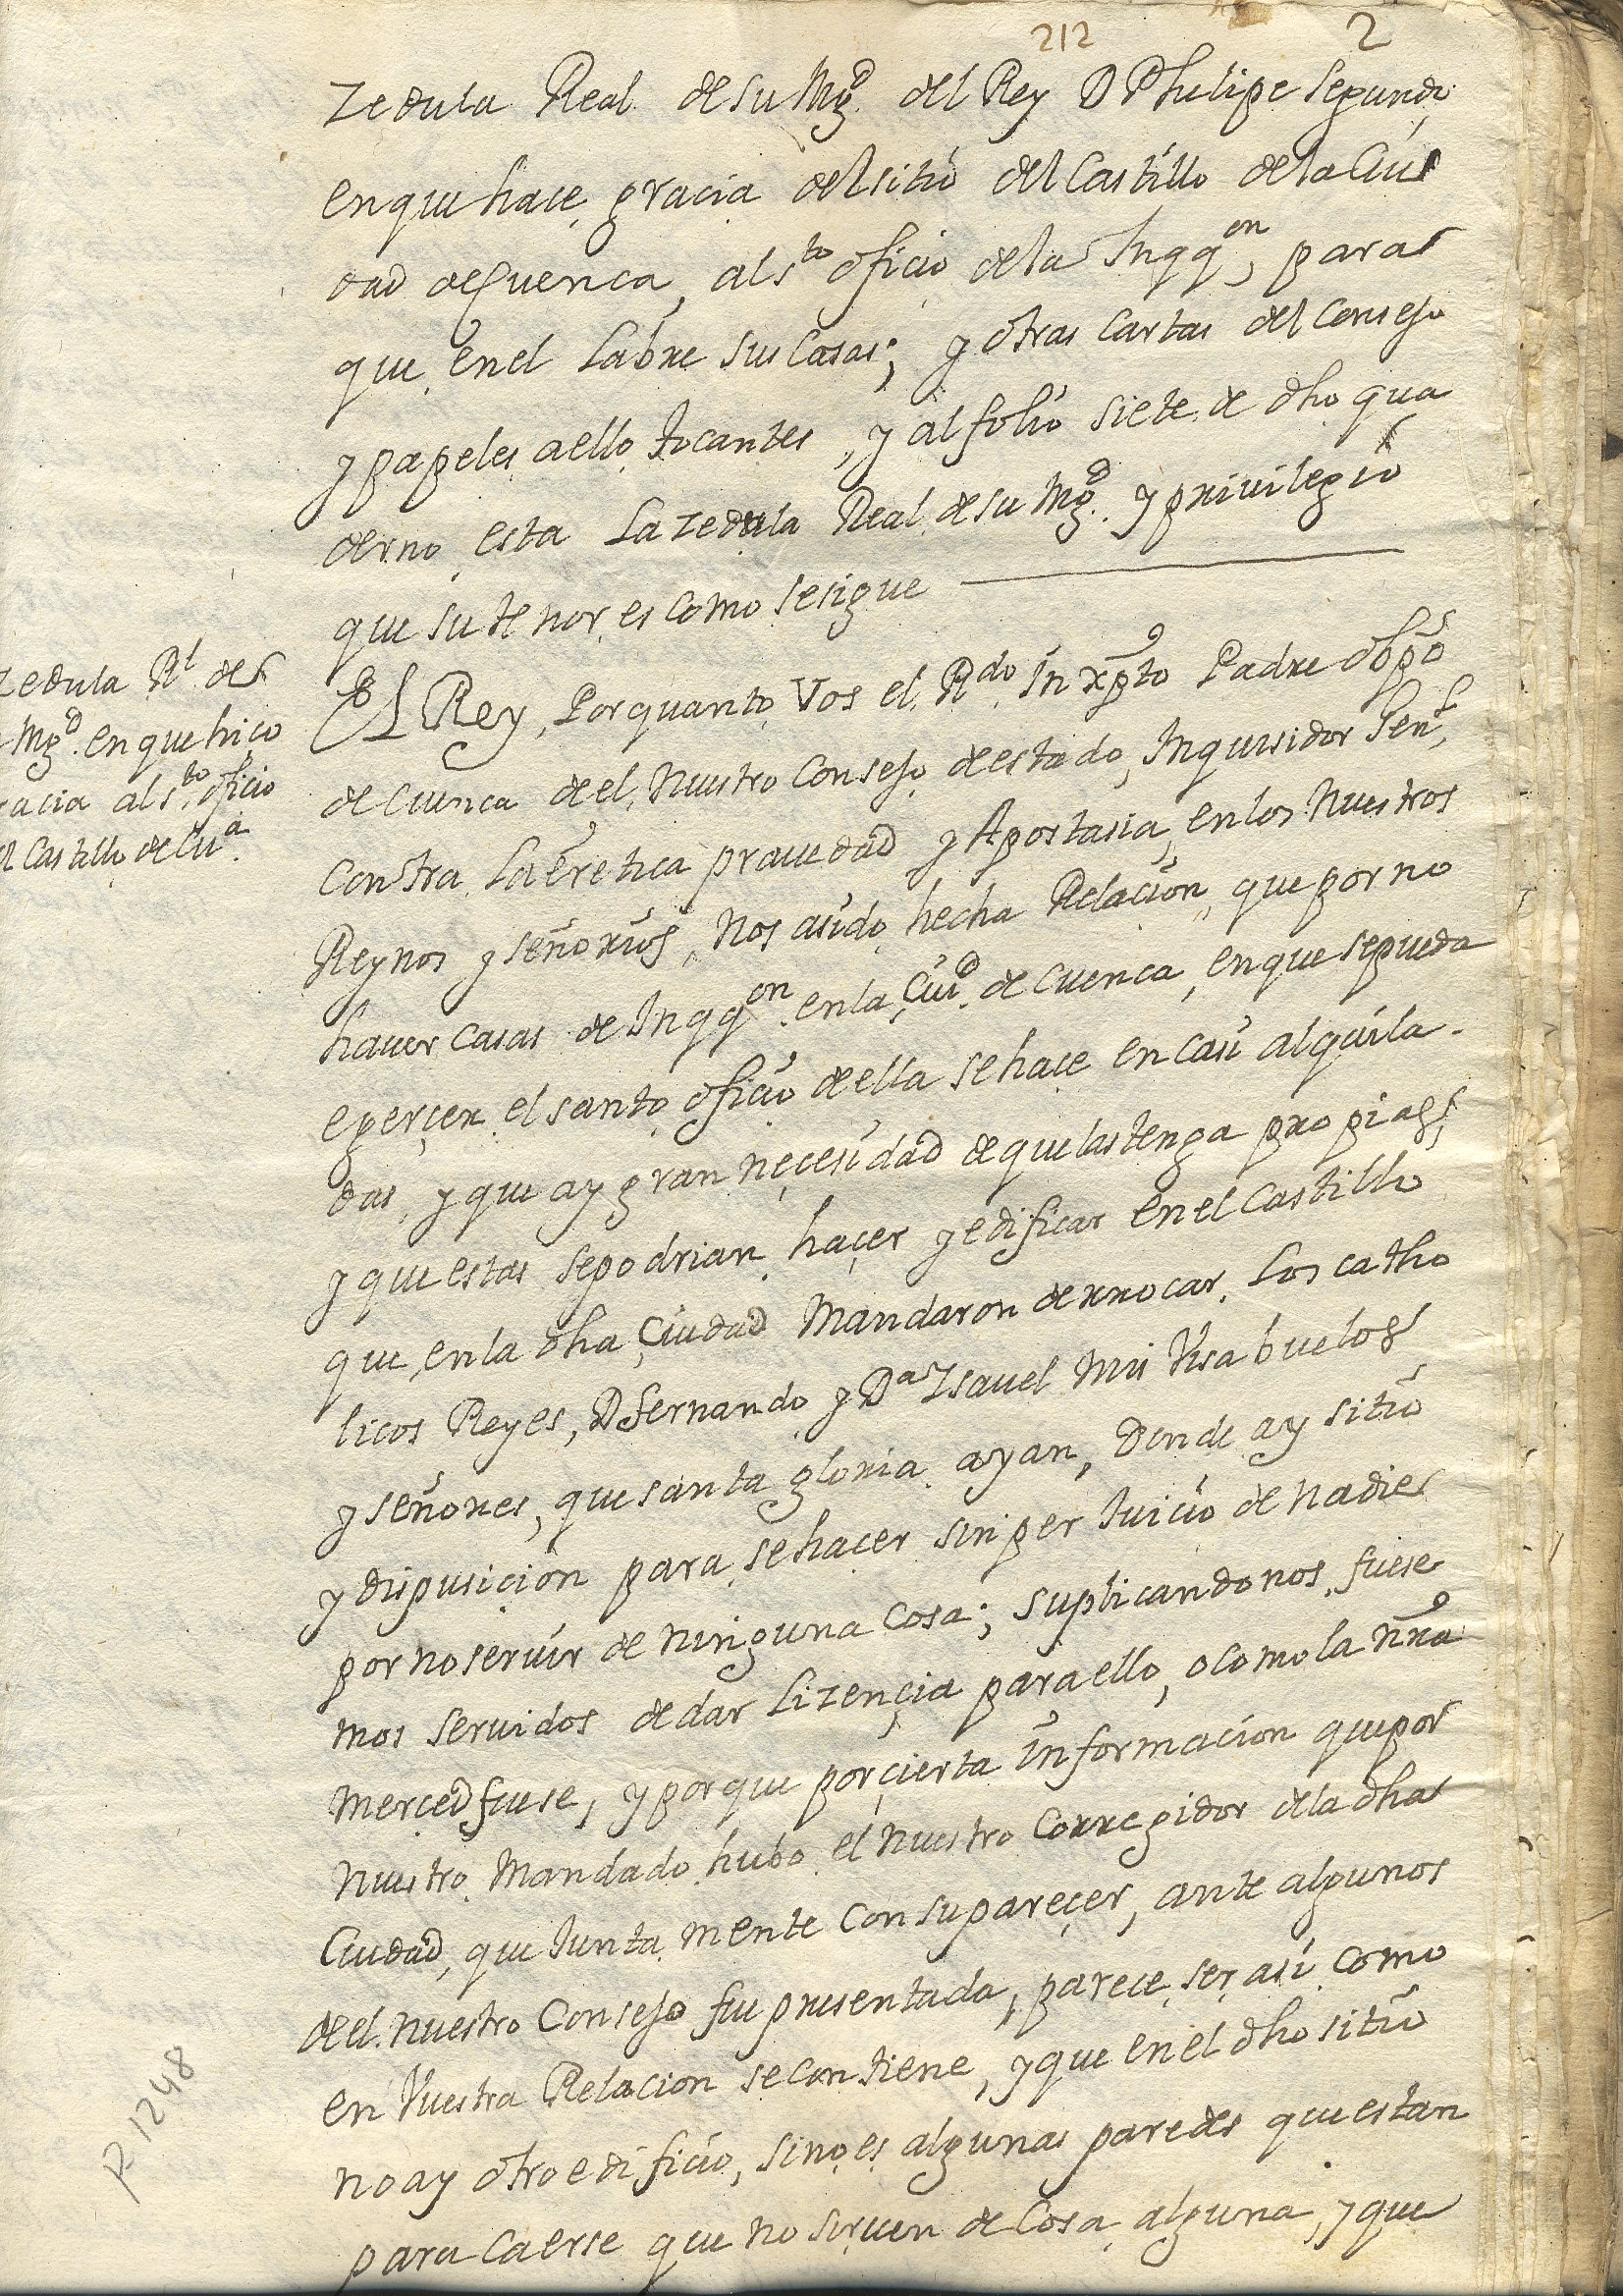 212 2
Zedula Real de su Mgd. del Rey D Phelipe Segundo
en que hace gracia del sitio del Castillo de la Ciu
dad de Cuenca, al sto oficio de la Inqqon, para
que en el Labre sus Casas; y otras Cartas del Consejo
y papeles a ello tocantes, y al folio siete de dho qua
derno esta La zedula Real de su Mgd. y privilegio
que su tenor es como se sigue
Zedula Rl de
Mgd. en que hiço
racia al sto oficio
el Castillo de Cua.
El Rey, Por quanto Vos el Rdo in xpto Padre obpo
de Cuenca de el nuestro Consejo de estado, Inquisidor Genl,
contra La eretica prauedad y Apostasia, en los nuestros
Reynos y señorios, Nos a sido hecha Relacion, que por no
hauer casas de Inqqon. en la Ciud. de Cuenca, en que se pueda
exerçer el santo oficio della se hace en casas alquila-
das, y que ay gran neçesidad de que las tenga propias,
y que estas se podrian haçer y edificar en el Castillo
que en la dha Çiudad Mandaron derrocar Los catho
licos Reyes, D fernando y Da Isauel Mis Visabuelos
y señores, que santa gloria ayan, Donde ay sitio
y dispusiçion para se haçer sin per Juicio de nadie
por no seruir de ninguna Cosa; suplicandonos fuese
mos seruidos de dar Lizençia para ello, o como la nra
merced fuese, y porque por çierta informacion que por
nuestro Mandado hubo el nuestro Corregidor de la dha
Ciudad, que Junta mente Con su pareçer, ante algunos
de el nuestro Consejo fue presentada, parece ser asi como
en Vuestra Relacion se contiene, y que en el dho sitio
no ay otro edificio, sino es algunas paredes que estan
para Caerse que no siruen de Cosa alguna, y que
P 1248